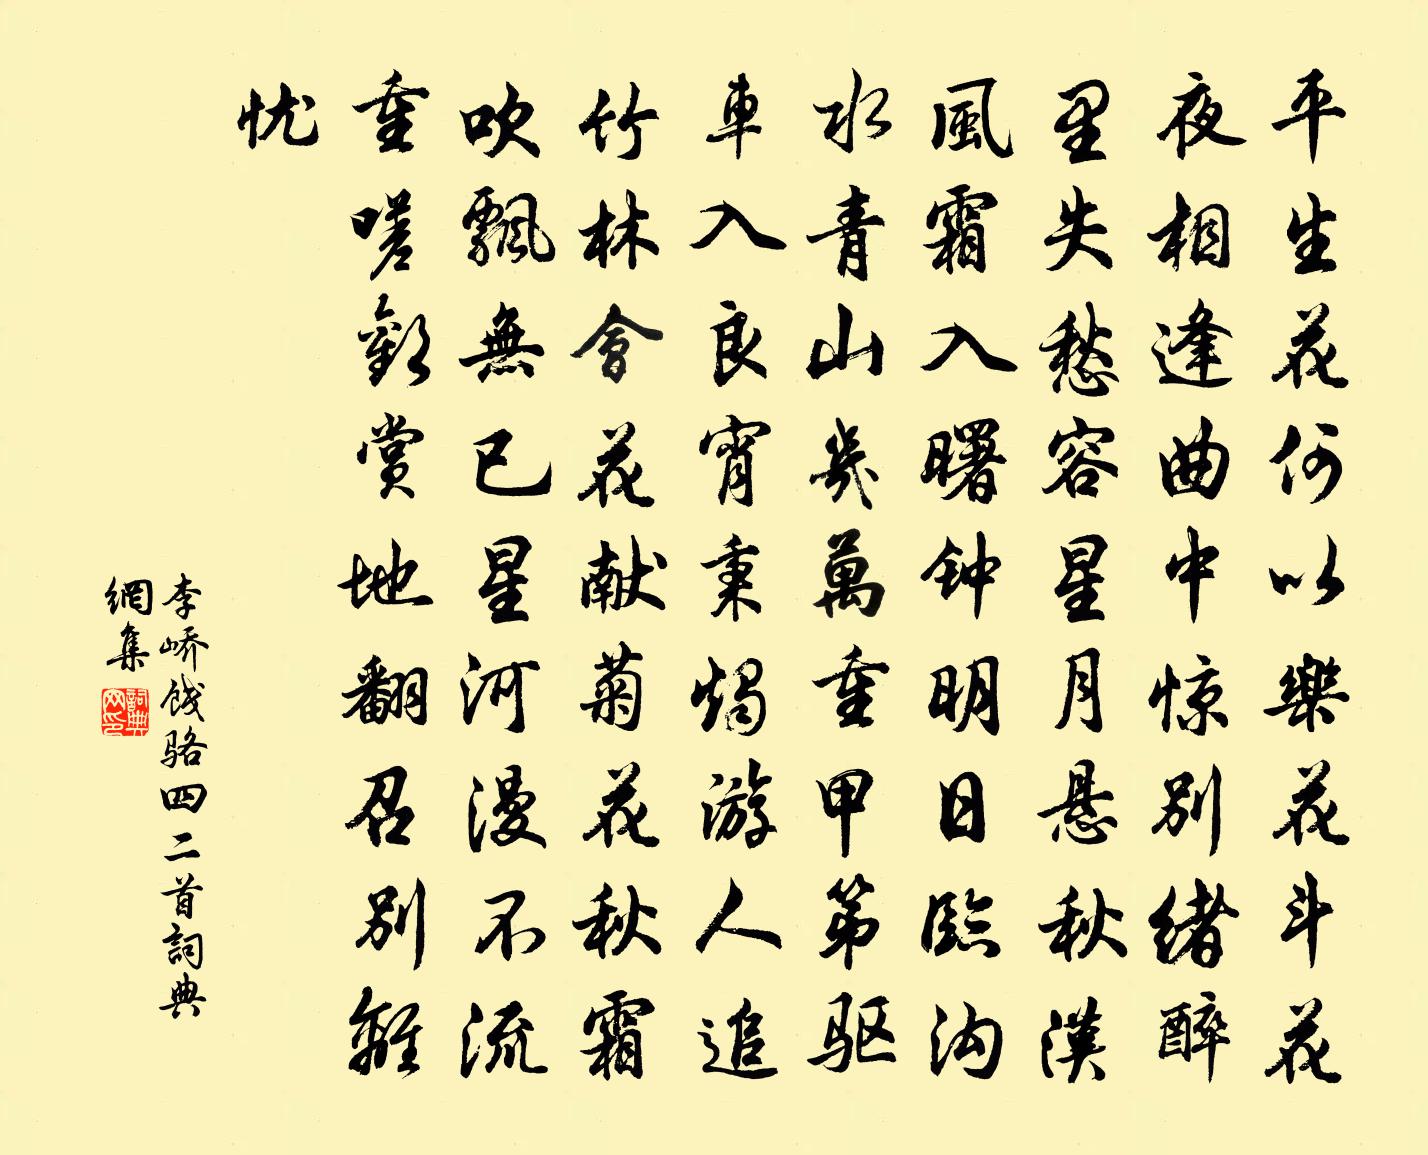 平生花何以樂花斗花
夜相逢曲中惊别緒醉
里失愁容星月悬秋漢
風霜入曙钟明日臨沟
水青山幾萬重甲第驱
車入良宵秉燭游人追
竹林會花献菊花秋霜
吹飄無已星河漫不流
重嗟歡賞地翻召别離
忧
李峤饯骆四二首詞典
網集
詞典网印